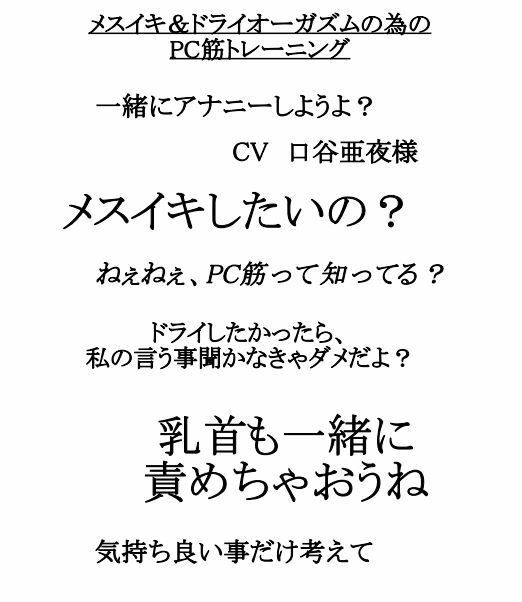 メスイキ＆ドライオーガズムの為の
PC筋トレーニング
一緒にアナニーしようよ？
CV　口谷亜夜様
メスイキしたいの？
ねぇねぇ、PC筋って知ってる？
ドライしたかったら、
私の言う事聞かなきゃダメだよ？
乳首も一緒に
責めちゃおうね
気持ち良い事だけ考えて